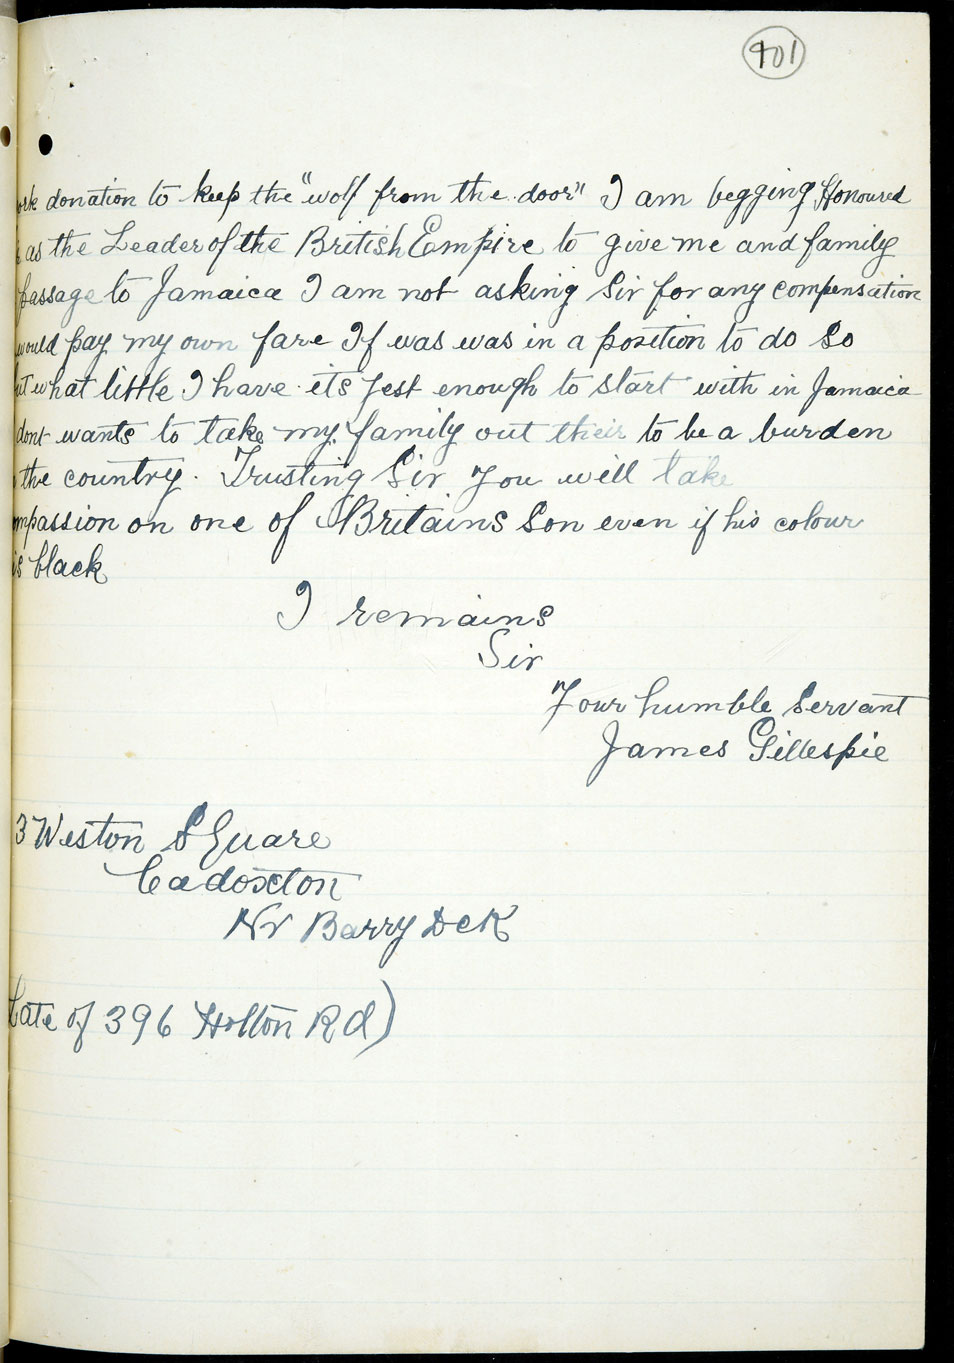 401
ork donation to keep the "wolf from the door" I am begging Honoured
as the Leader of the British Empire to give me and family
passage to Jamaica I am not asking Sir for any compensation
would pay my own fare If was was in a position to do so
ut what little I have its jest enough to start with in Jamaica
dont wants to take my family out their to be a burden
the country. Trusting Sir you will take
mpassion on one of Britains Son even if his colour
is black
I remains
Sir
Your humble Servant
James Gillespie
3 Weston Square
Cadoxton
Nr Barry Dck
Late of 396 Holton Rd)